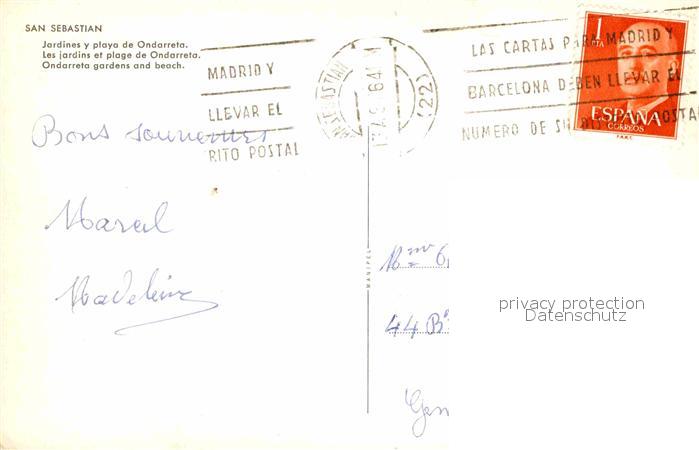 SAN SEBASTIAN
Jardines y playa de Ondarreta.
Les jardins et plage de Ondarreta.
Ondarreta gardens and beach.
MADRID Y
LLEVAR EL
RITO POSTAL
SEBASTIAN
64
(22)
LAS CARTAS PARA MADRID Y
BARCELONA DEBEN LLEVAR EL
NUMERO DE SU POSTAL
1
PTA
ESPAÑA
CORREOS
Bons souvenirs
Marcel
Madeleine
MANIPEL
Mme
44 B
Gen
privacy protection
Datenschutz